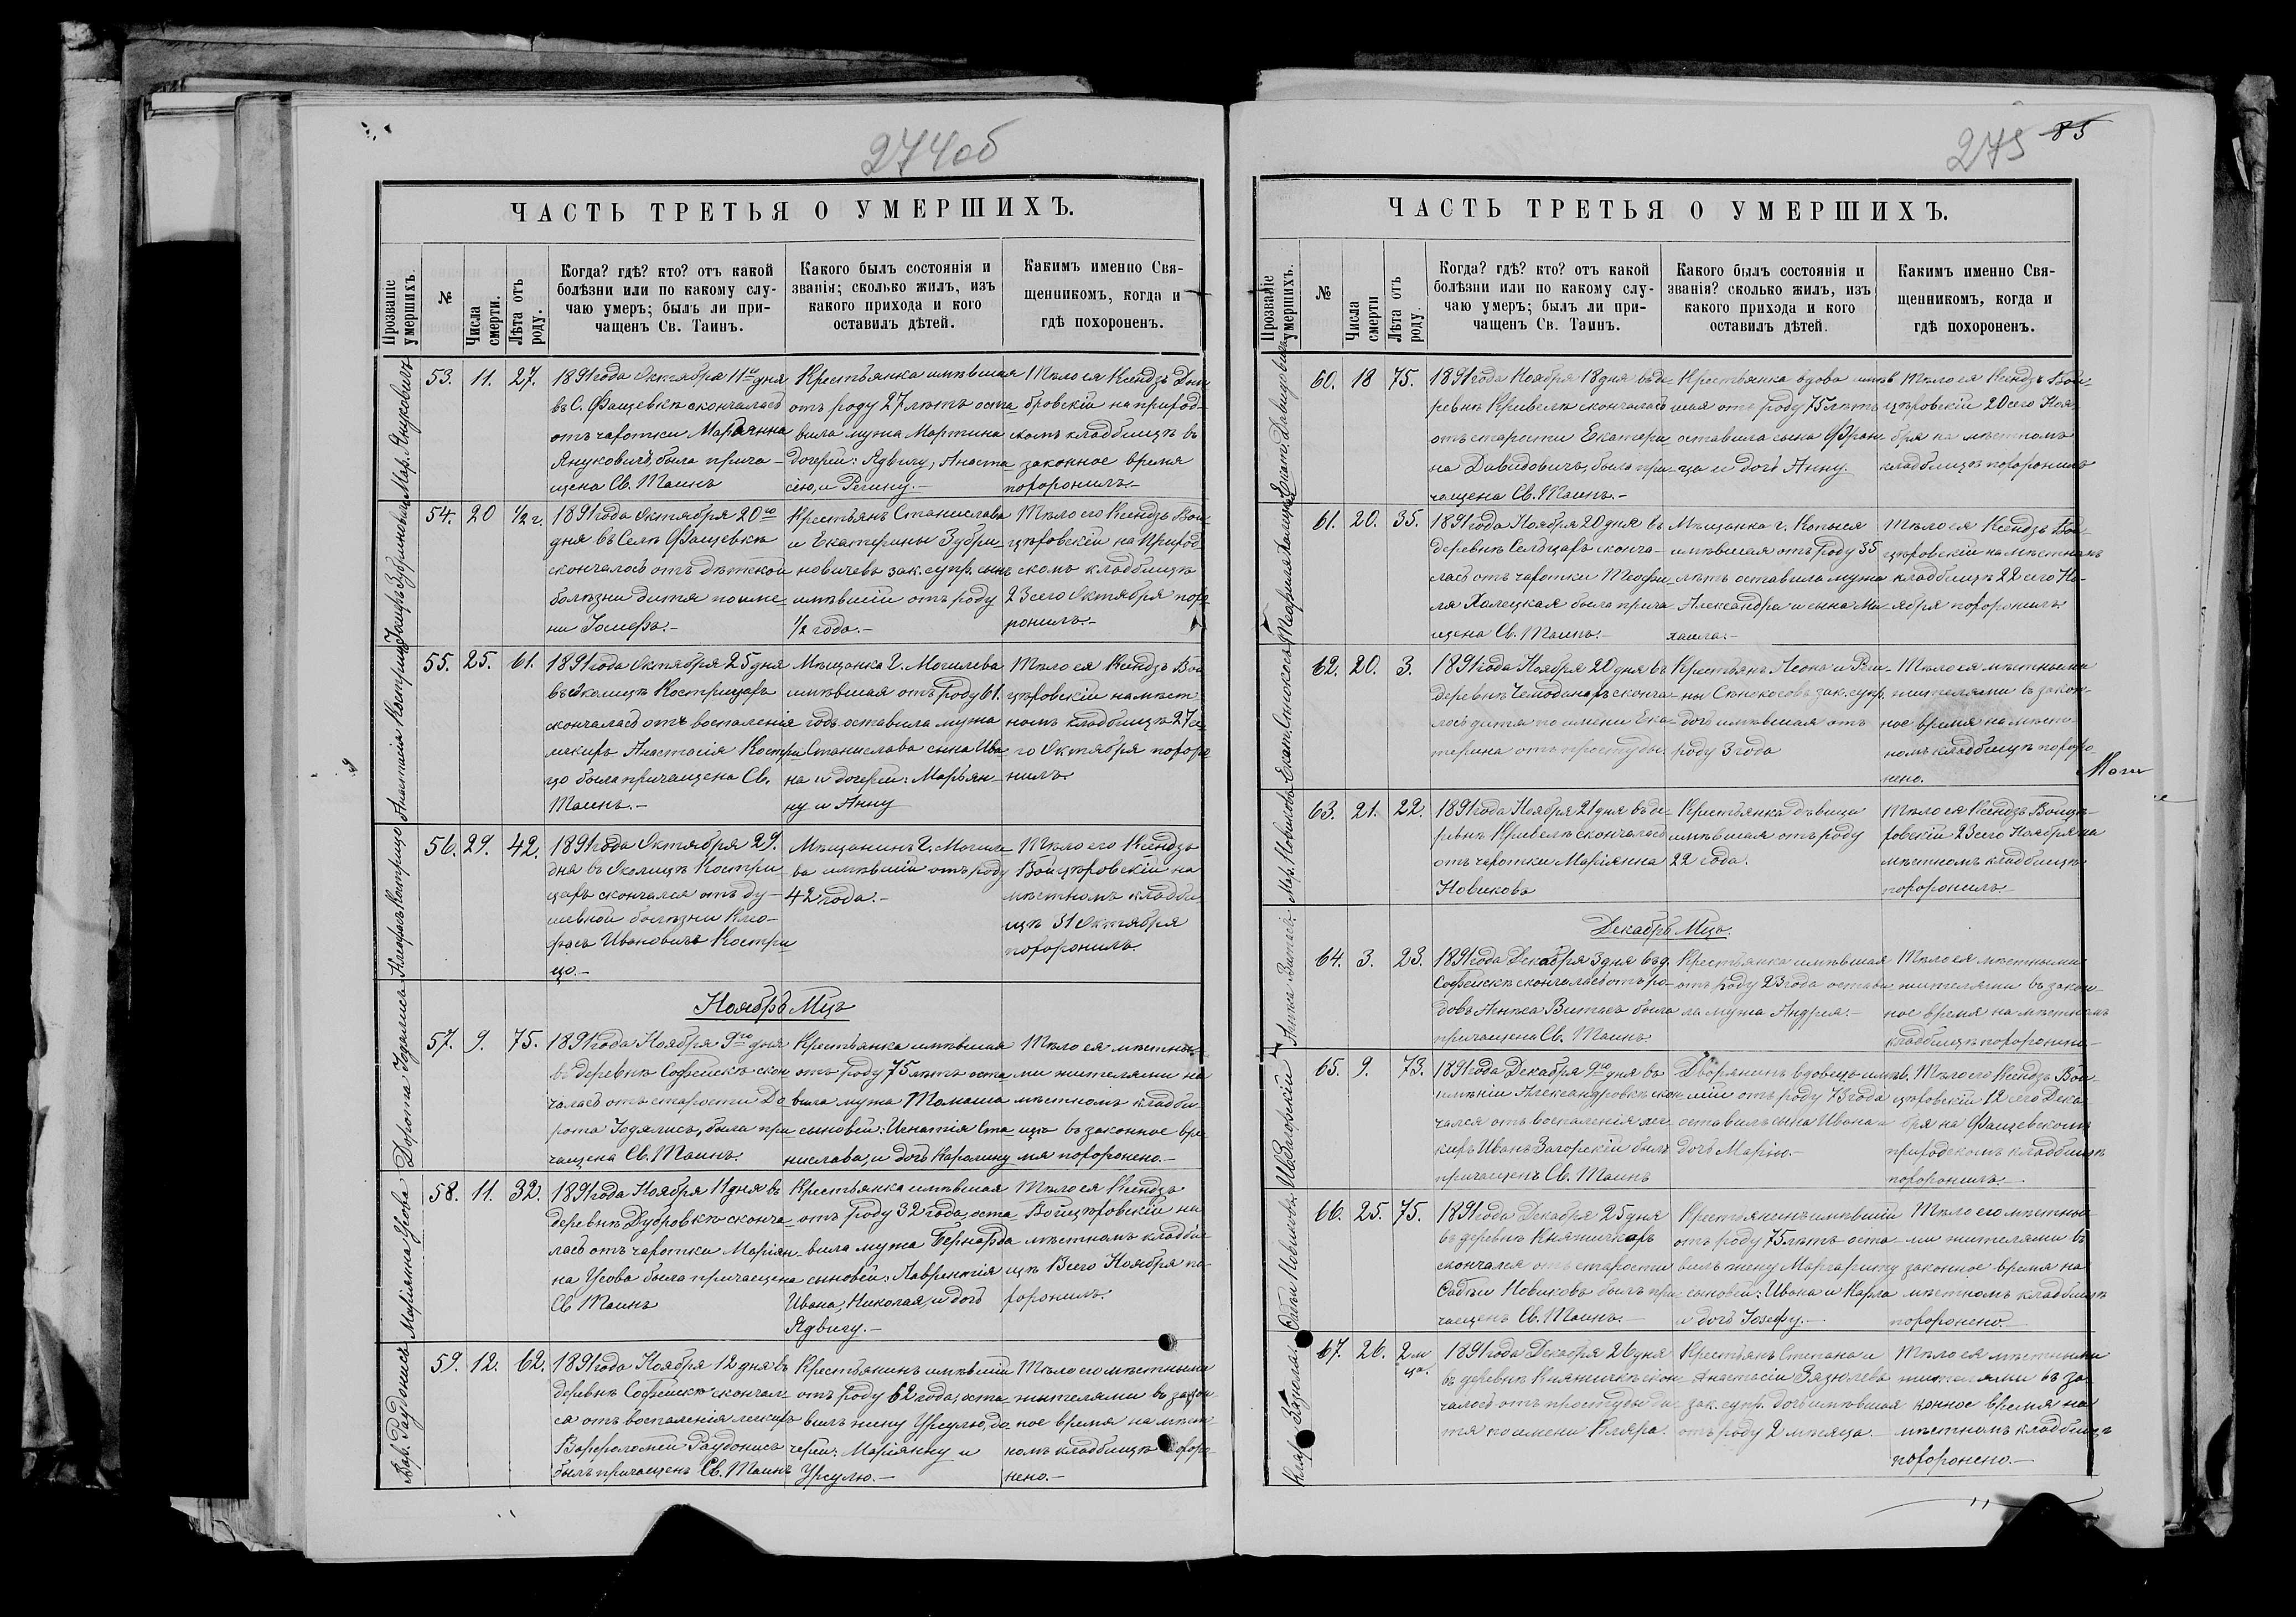 274об
ЧАСТЬ ТРЕТЬЯ О УМЕРШИХЪ.
Прозваніе умершихъ.
№
Числа смерти.
Лѣта отъ роду.
Когда? гдѣ? кто? отъ какой
болѣзни или по какому слу-
чаю умеръ; былъ ли при-
чащенъ Св. Таинъ.
Какого былъ состоянія и
званія; сколько жилъ, изъ
какого прихода и кого
оставилъ дѣтей.
Какимъ именно Свя-
щенникомъ, когда и
гдѣ похороненъ.
Мар. Янукович
53. 11. 27.
1891 года Октября 11го дня
въ С. Фащевкѣ скончалась
отъ чахотки Марьянна
Януковичъ, была прича-
щена Св. Таинъ
Крестьянка имѣвшая
отъ роду 27 лѣтъ оста
вила мужа Мартина
дочерей: Ядвигу, Анаста
сію, и Регину.-
Тѣло ея Ксендзъ Дом
бровскій на приход-
скомъ кладбищѣ въ
законное время
похоронилъ.-
Іосифъ Зубриновичъ
54. 20 1/2 г.
1891 года Октября 20го
дня въ Селѣ Фащевкѣ
скончалось отъ дѣтской
болѣзни дитя по име-
ни Іосифъ.-
Крестьянъ Станислава
и Екатерины Зубри-
новичевъ зак. супр. сынъ
имѣвшій отъ роду
1/2 года.-
Тѣло его Ксендзъ Вой-
цѣховскій на Приход-
скомъ кладбищѣ
23 сего Октября похо-
ронилъ.-
Анастасія Кострица
55. 25. 61.
1891 года Октября 25 дня
въ околицѣ Кострицахъ
скончалась отъ воспаленія
легкихъ Анастасія Костри
цо была причащена Св.
Таинъ.-
Мѣщанка Г. Могилева
имѣвшая отъ роду 61.
годъ оставила мужа
Станислава сына Ива
на и дочерей: Марьян-
ну и Анну
Тѣло ея Ксендзъ Вой
цѣховскій на мѣст
номъ кладбищѣ 27 се
го Октября похоро
нилъ.
Клеофасъ Кострицо
56. 29. 42.
1891 года Октября 29.
дня въ Околицѣ Костри
цахъ скончался отъ ду-
шевной болѣзни Клео-
фасъ Ивановичъ Костри
цо.-
Мѣщанинъ Г. Могиле
ва имѣвшій отъ роду
42 года.-
Тѣло его Ксендзъ
Войцѣховскій на
мѣстномъ кладби
щѣ 31 Октября
похоронилъ.
Ноябрь Мцъ
Дорота Іодялисъ
57. 9. 75.
1891 года Ноября 9го дня
въ деревнѣ Софейскѣ скон
чалась отъ старости До
рота Іодялисъ, была при
чащена Св. Таинъ.
Крестьянка имѣвшая
отъ роду 75 лѣтъ оста
вила мужа Томаша
сыновей: Игнатія Ста
нислава, и дочь Каролину
Тѣло ея мѣстны-
ми жителями на
мѣстномъ кладби
щѣ въ законное вре
мя похоронено.-
Маріянна Усова
58. 11. 32.
1891 года Ноября 11 дня въ
деревнѣ Дубровкѣ сконча
лась отъ чахотки Маріян-
на Усова была причащена
Св Таинъ
Крестьянка имѣвшая
отъ роду 32 года, оста
вила мужа Бернарда
сыновей: Лаврентія
Ивана, Николая, и дочь
Ядвигу.-
Тѣло ея Ксендзъ
Войцѣховскій на
мѣстномъ кладби-
щѣ 13 сего Ноября по-
хоронилъ.
Вар. Раудонисъ
59. 12. 62.
1891 года Ноября 12 дня въ
деревнѣ Софейскѣ скончал-
ся отъ воспаленія легкихъ
Варфоломей Раудонисъ
былъ причащенъ Св. Таинъ
Крестьянинъ имѣвшій
отъ роду 62 года, оста-
вилъ жену Урсулю, до
черей: Маріянну и
Урсулю.-
Тѣло его мѣстными
жителями въ закон-
ное время на мѣст
номъ кладбищѣ похоро
нено.-
275 85
ЧАСТЬ ТРЕТЬЯ О УМЕРШИХЪ.
Прозваніе умершихъ.
№
Числа смерти
Лѣта отъ роду.
Когда? гдѣ? кто? отъ какой
болѣзни или по какому слу-
чаю умеръ; былъ ли при-
чащенъ Св. Таинъ.
Какого былъ состоянія и
званія? сколько жилъ, изъ
какого прихода и кого
оставилъ дѣтей.
Какимъ именно Свя-
щенникомъ, когда и
гдѣ похороненъ.
Екат. Давидовичъ
60. 18 75.
1891 года Ноября 18 дня въ де-
ревнѣ Кривелѣ скончалась
отъ старости Екатери
на Давидовичъ, была при-
чащена Св. Таинъ.-
Крестьянка вдова имѣв
шая отъ роду 75 лѣтъ
оставила сына Фран
ца и дочь Анну.
Тѣло ея Ксендзъ Вой-
цѣховскій 20 сего Ноя-
бря на мѣстномъ
кладбищѣ похоронилъ
61. 20. 35.
1891 года Ноября 20 дня въ
деревнѣ Сельцахъ сконча-
лась отъ чахотки Теофи-
ля Халецкая была прича
щена Св. Таинъ.-
Мѣщанка г. Копыся
имѣвшая отъ роду 35
лѣтъ оставила мужа
Александра и сына Ми
хаила.-
Тѣло ея Ксендзъ Вой-
цѣховскій на мѣстномъ
кладбищѣ 22 сего Но-
ября похоронилъ
Екат. Сѣнокосъ
62. 20. 3.
1891 года Ноября 20 дня въ
деревнѣ Чемоданахъ сконча-
лось дитя по имени Ека-
терина отъ простуды.
Крестьянъ Леона и Ре-
ны Сѣнокосовъ зак. супр.
дочь имѣвшая отъ
роду 3 года
Тѣло ея мѣстными
жителями въ закон-
ное время на мѣст-
номъ кладбищѣ похоро-
нено.
Мар. Новикова
63. 21. 22.
1891 года Ноября 21 дня въ де-
ревнѣ Кривелѣ скончалась
отъ чахотки Маріянна
Новикова
Крестьянка дѣвица
имѣвшая отъ роду
22 года.
Тѣло ея Ксендзъ Войцѣ-
ховскій 23 сего Ноября на
мѣстномъ кладбищѣ
похоронилъ
Декабрь Мцъ.
Анна Витасъ
64. 3. 23.
1891 года Декабря 3 дня въ д.
Софейскѣ скончалась отъ ро-
довъ Анна Витасъ была
причащена Св. Таинъ
Крестьянка имѣвшая
отъ роду 23 года остави
ла мужа Андрея.-
Тѣло ея мѣстными
жителями въ закон-
ное время на мѣстномъ
кладбищѣ похоронено-
Ив. Загорскій
65. 9. 73.
1891 года Декабря 9го дня въ
имѣніи Александровкѣ скон
чался отъ воспаленія лег
кихъ Иванъ Загорскій былъ
причащенъ Св. Таинъ
Дворянинъ вдовецъ имѣв.
шій отъ роду 73 года
оставилъ сына Ивана и
дочь Марію.-
Тѣло его Ксендзъ Вой-
цѣховскій 12 сего Дека
бря на Фащевскомъ
приходскомъ кладбищѣ
похоронилъ.
Фадѣй Новиковъ
66. 25. 75.
1891 года Декабря 25 дня
въ деревнѣ Княжичкахъ
скончался отъ старости
Фадѣй Новиковъ былъ при
чащенъ Св. Таинъ.-
Крестьянинъ имѣвшій
отъ роду 75 лѣтъ оста-
вилъ жену Маргариту
сыновей: Ивана и Карла
и дочь Іозефу.-
Тѣло его мѣстны-
ми жителями въ
законное время на
мѣстномъ кладбищѣ
похоронено.
67. 26. 2 м ца.
1891 года Декабря 26 дня
въ деревнѣ Княжичкѣ скон
чалось отъ простуды ди-
тя по имени Кляра.
Крестьянъ Степана и
Анастасіи Зязюлевъ
зак. супр. дочь имѣвшая
отъ роду 2 мѣсяца.-
Тѣло ея мѣстными
жителями въ за
конное время на
мѣстномъ кладбищѣ
похоронено.-